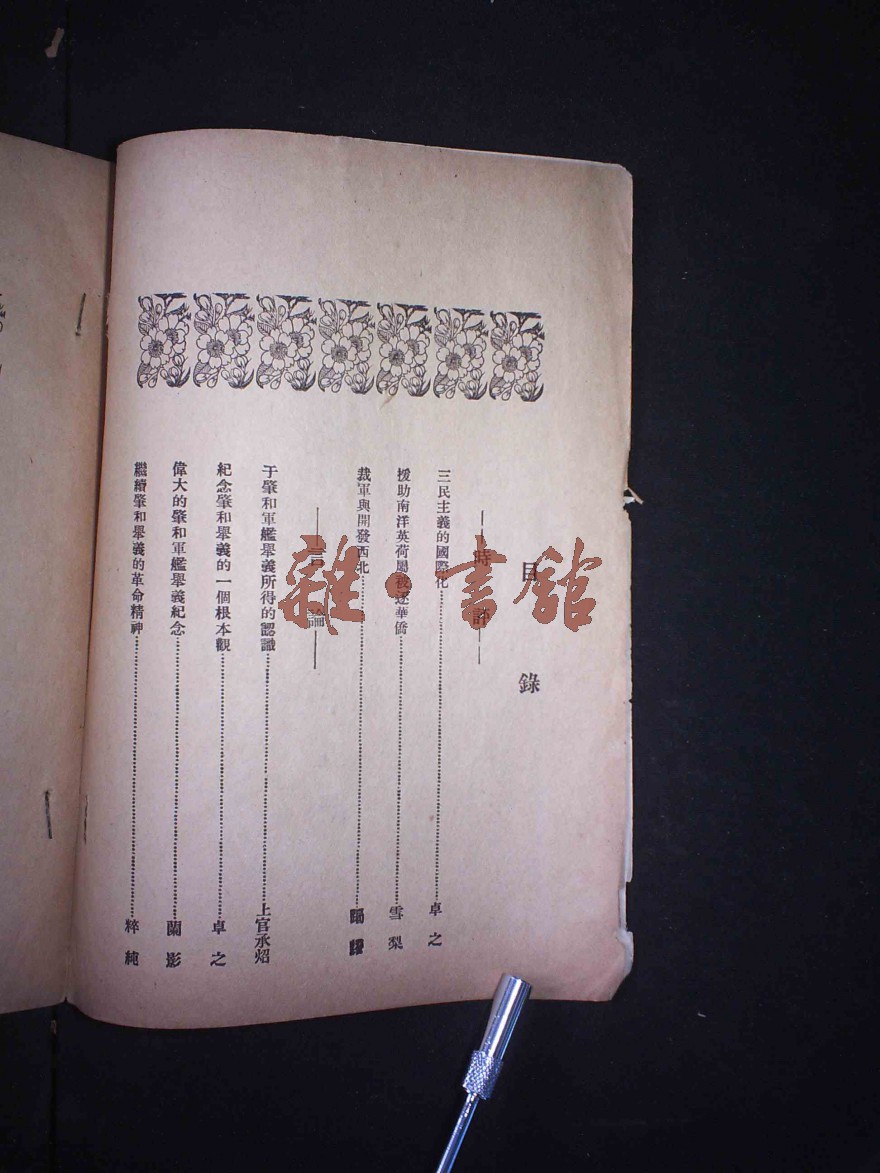 目錄
時評
三民主義的國際化 卓之
援助南洋英荷屬被逐華僑 雪梨
裁軍與開發西北
言論
于肇和軍艦舉義所得的認識 上官承炤
紀念肇和舉義的一個根本觀 卓之
偉大的肇和軍艦舉義紀念 蘭影
繼續肇和舉義的革命精神 粹純
雜·書館